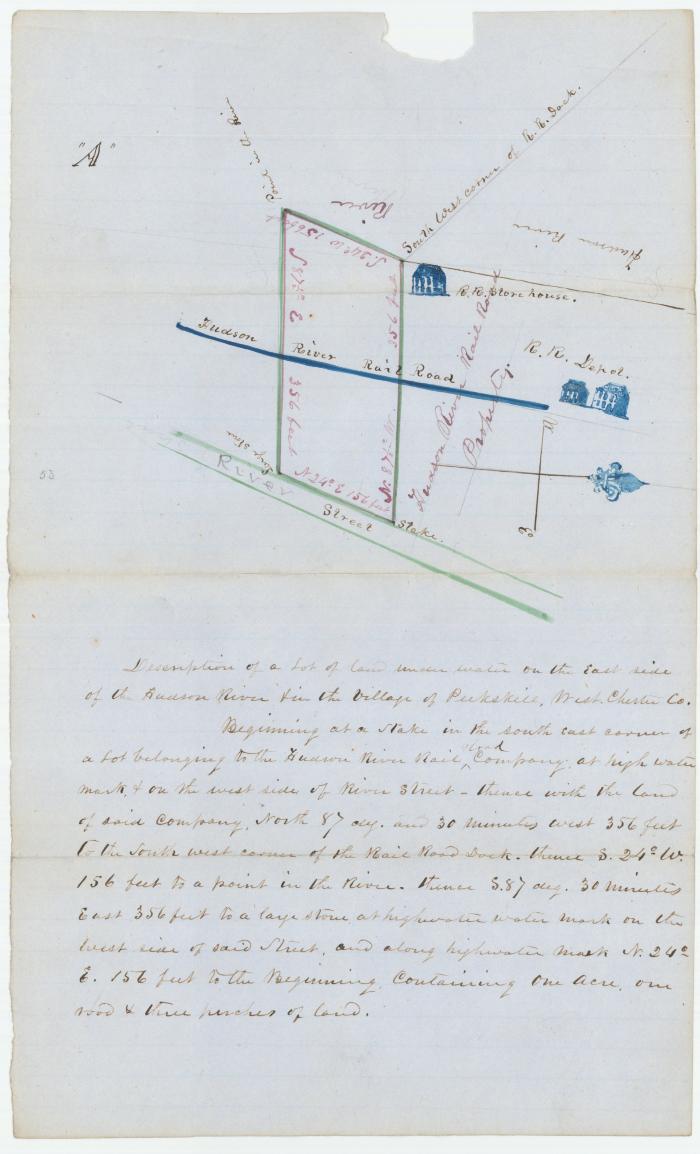 "A"
Point in the River
River
South West corner of R. R. Dock.
Hudson River
S. 24° W 156 feet
S 87½° E 356 feet
356 feet N. 87½° W.
R. R. Store house.
Hudson River Rail Road
R. R. Depot.
Hudson River Rail Road
Property.
Large stone
N 24° E 156 feet
River Street
Stake.
53
Description of a Lot of land under water on the East side
of the Hudson River & in the Village of Peekskill, West Chester Co.
Beginning at a Stake in the south east corner of
a Lot belonging to the Hudson River Rail road Company, at high water
mark, & on the west side of River Street - thence with the land
of said Company, North 87 deg. and 30 minutes west 356 feet
to the South west corner of the Rail Road Dock. thence S. 24° W.
156 feet to a point in the River. thence S. 87 deg. 30 minutes
East 356 feet to a large stone at highwater water mark on the
West side of said Street, and along highwater mark N. 24°
E. 156 feet to the Beginning, Containing One Acre, one
rood & three perches of land.